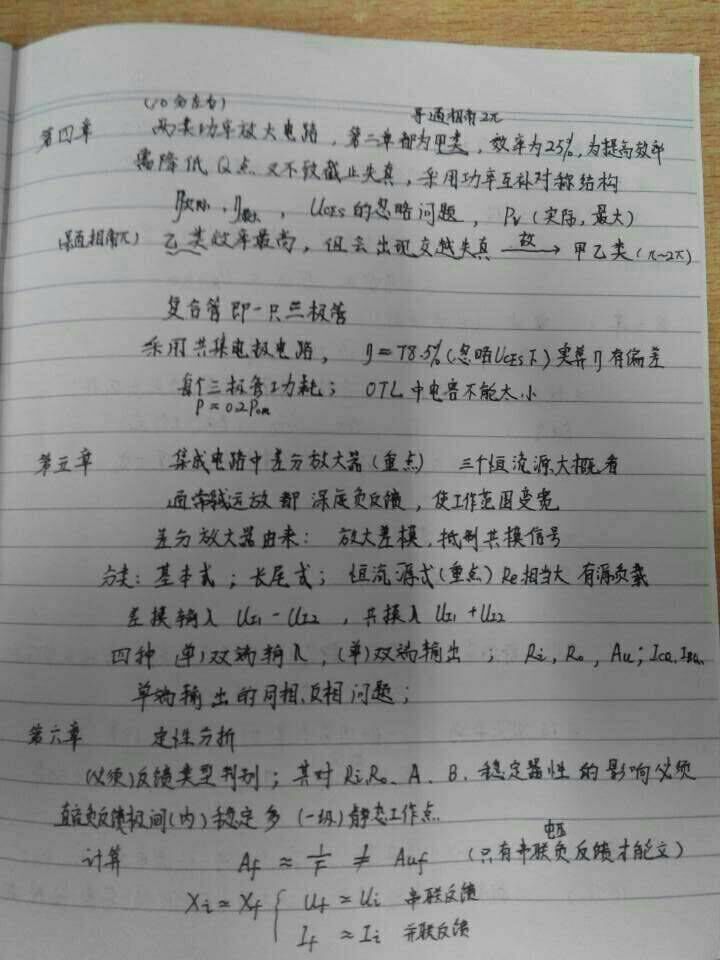 (10分左右)
导通相角2π
第四章 两类功率放大电路，第二章都为甲类，效率为25%，为提高效率
需降低Q点又不致截止失真，采用功率互补对称结构
UCES的忽略问题，PV（实际，最大）
(导通相角π) 乙类效率最高，但会出现交越失真 故→ 甲乙类（π~2π）
复合管即一只三极管
采用共集电极电路，η=78.5%(忽略UCES下)实算η有偏差
每个三极管功耗； OTL中电容不能太小
P≈0.2Pom
第五章 集成电路中差分放大器（重点） 三个恒流源大概看
通常线运放都深度负反馈，使工作范围变宽
差分放大器由来：放大差模，抵制共模信号
分类：基本式；长尾式；恒流源式(重点)Re相当大 有源负载
差模输入 UI1-UI2，共模入 UI1+UI2
四种 (单)双端输入；(单)双端输出； Ri, Ro, Au; ICQ, IBQ,
单端输出的同相、反相问题；
第六章 定性分折
(必须)反馈类型判别；其对Ri、Ro、A、B、稳定器性的影响必须
直流负反馈极间(内)稳定多(一级)静态工作点.
电压
计算 Af ≈ 1/F ≠ Auf (只有串联负反馈才能文)
Xi≈Xf { Uf ≈ Ui 串联反馈
If ≈ Ii 并联反馈